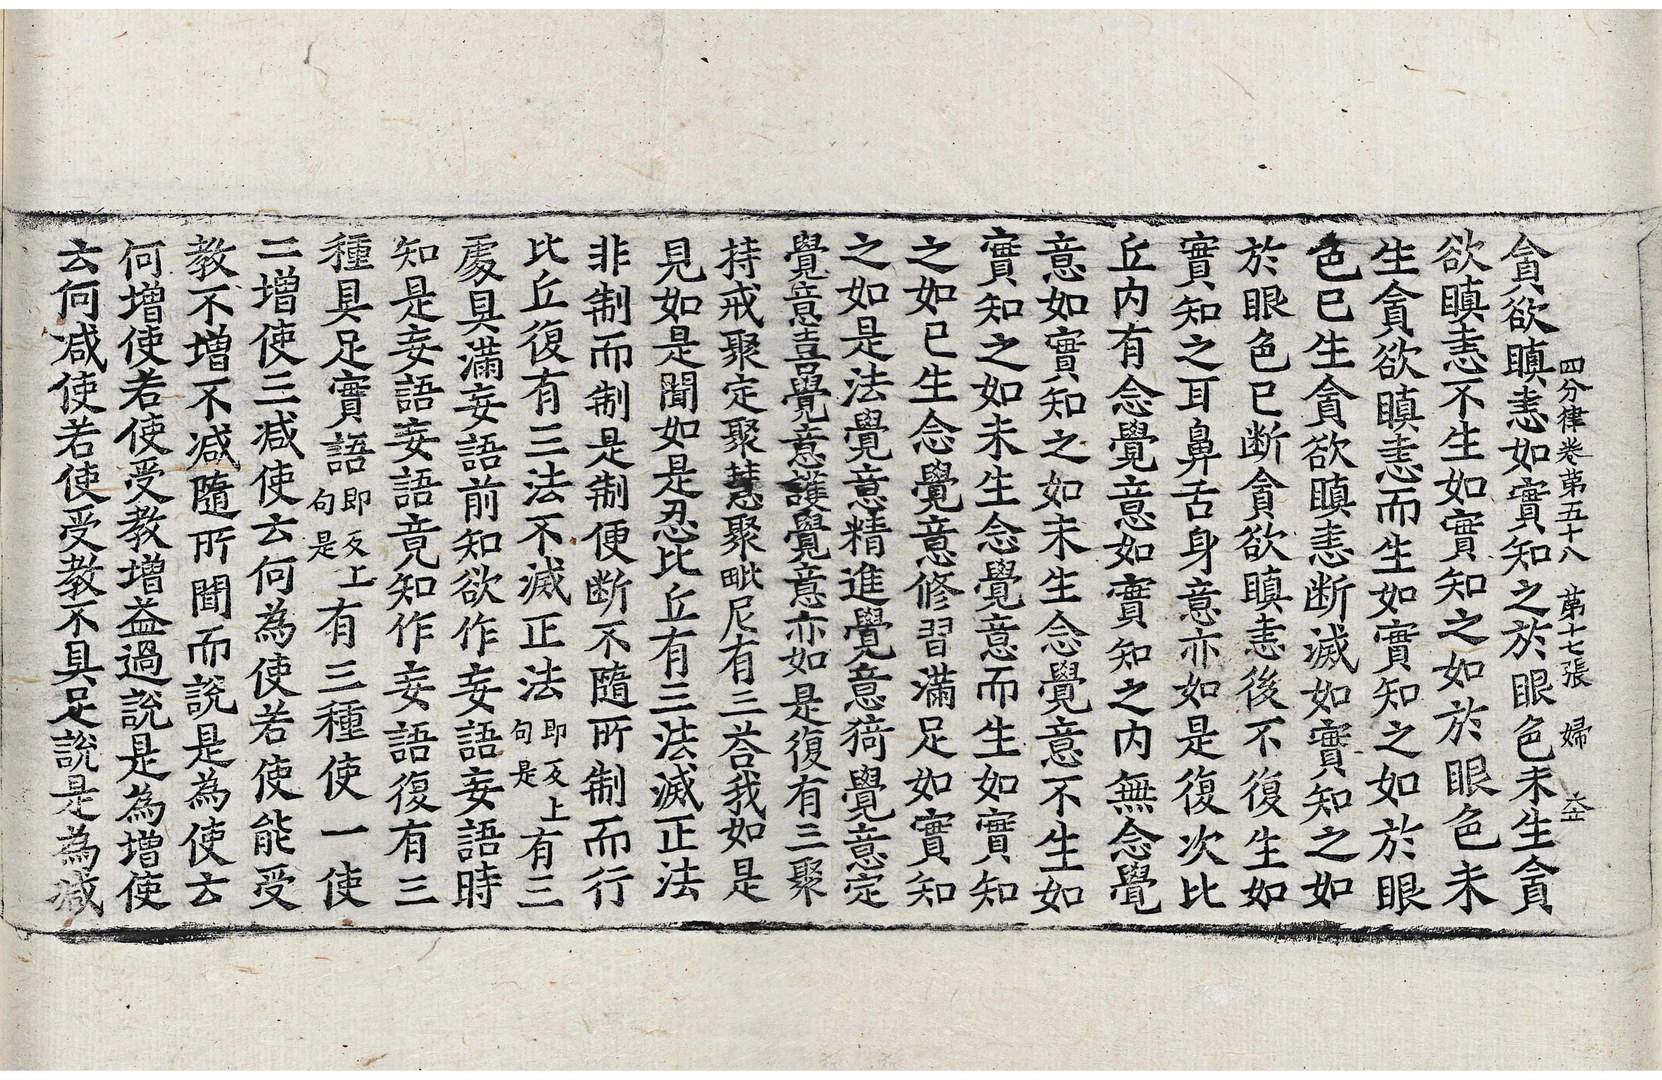 四分律卷第五十八 第十七張 婦
貪欲瞋恚如實知之於眼色未生貪
欲瞋恚不生如實知之如於眼色未
生貪欲瞋恚而生如實知之如於眼
色已生貪欲瞋恚断滅如實知之如
於眼色已断貪欲瞋恚後不復生如
實知之耳鼻舌身意亦如是復次比
丘内有念覺意如實知之内無念覺
意如實知之如未生念覺意不生如
實知之如未生念覺意而生如實知
之如已生念覺意修習滿足如實知
之如是法覺意精進覺意猗覺意定
覺意喜覺意護覺意亦如是復有三聚
持戒聚定聚慧聚毗尼有三荅我如是
見如是聞如是忍比丘有三法滅正法
非制而制是制便断不隨所制而行
比丘復有三法不滅正法即反上句是有三
處具滿妄語前知欲作妄語妄語時
知是妄語妄語竟知作妄語復有三
種具足實語即反上句是有三種使一使
二增使三减使云何為使若使能受
教不增不减隨所聞而說是為使云
何增使若使受教增益過說是為增使
云何减使若使受教不具足說是為减